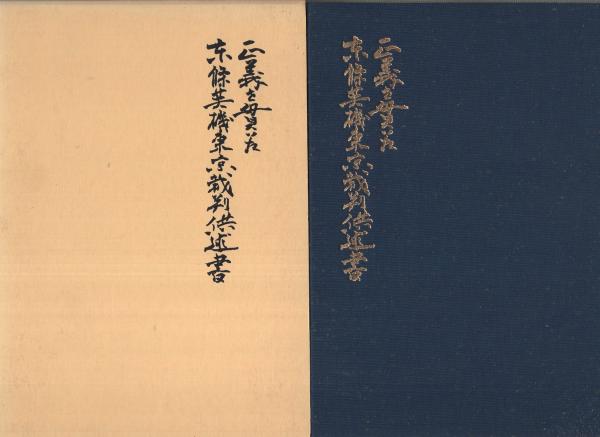 正義を貫いた
東條英機東京裁判供述書
正義を貫いた
東條英機東京裁判供述書